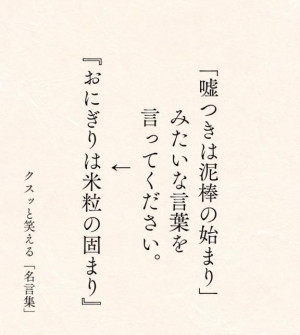 「嘘つきは泥棒の始まり」
みたいな言葉を
言ってください。
↓
『おにぎりは米粒の固まり』
クスッと笑える「名言集」